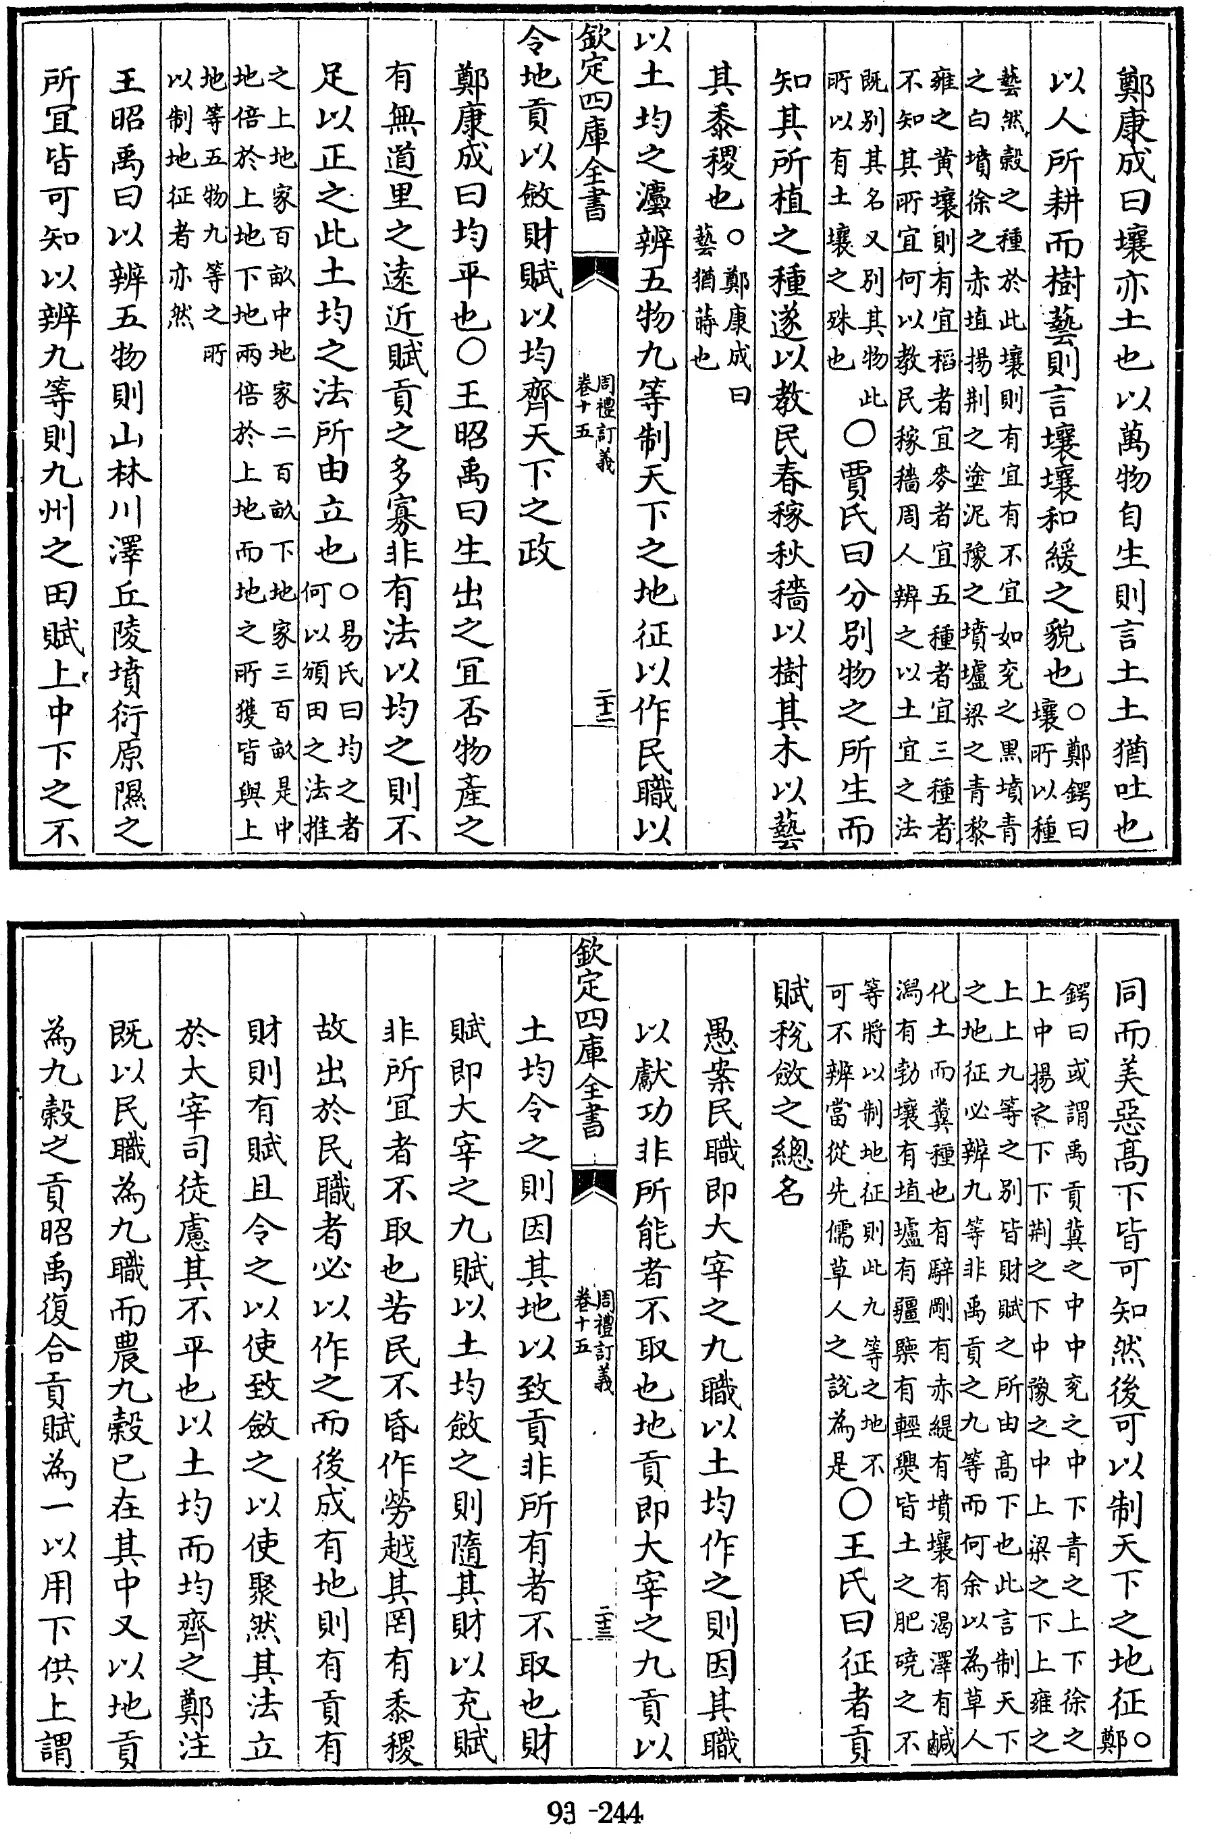 鄭康成曰壤亦土也以萬物自生則言土土猶吐也
以人所耕而樹藝則言壤壤和緩之貌也○鄭鍔曰
壤所以種
藝然穀之種於此壤則有宜有不宜如兖之黒墳青
之白墳徐之赤埴揚荆之塗泥豫之墳壚梁之青黎
雍之黄壤則有宜稻者宜麥者宜五種者宜三種者
不知其所宜何以教民稼穡周人辨之以土宜之法
既别其名又别其物此
所以有土壤之殊也
○賈氏曰分别物之所生而
知其所植之種遂以教民春稼秋穡以樹其木以藝
其黍稷也○鄭康成曰
藝猶蒔也
以土均之灋辨五物九等制天下之地征以作民職以
欽定四庫全書
周禮訂義
卷十五
二十二
令地貢以斂財賦以均齊天下之政
鄭康成曰均平也○王昭禹曰生出之宜否物産之
有無道里之逺近賦貢之多寡非有法以均之則不
足以正之此土均之法所由立也○易氏曰均之者
何以頒田之法推
之上地家百畝中地家二百畝下地家三百畝是中
地倍於上地下地兩倍於上地而地之所獲皆與上
地等五物九等之所
以制地征者亦然
王昭禹曰以辨五物則山林川澤丘陵墳衍原隰之
所宜皆可知以辨九等則九州之田賦上中下之不
同而美惡髙下皆可知然後可以制天下之地征○
鄭
鍔曰或謂禹貢冀之中中兖之中下青之上下徐之
上中揚之下下荆之下中豫之中上梁之下上雍之
上上九等之别皆財賦之所由髙下也此言制天下
之地征必辨九等非禹貢之九等而何余以為草人
化土而糞種也有騂剛有赤緹有墳壤有渴澤有鹹
潟有勃壤有埴壚有疆㯺有輕㷱皆土之肥磽之不
等將以制地征則此九等之地不
可不辨當從先儒草人之說為是
○王氏曰征者貢
賦稅斂之總名
愚案民職即大宰之九職以土均作之則因其職
以獻功非所能者不取也地貢即大宰之九貢以
欽定四庫全書
周禮訂義
卷十五
二十三
土均令之則因其地以致貢非所有者不取也財
賦即大宰之九賦以土均斂之則隨其財以充賦
非所宜者不取也若民不昏作勞越其罔有黍稷
故出於民職者必以作之而後成有地則有貢有
財則有賦且令之以使致斂之以使聚然其法立
於太宰司徒慮其不平也以土均而均齊之鄭注
既以民職為九職而農九穀已在其中又以地貢
為九穀之貢昭禹復合貢賦為一以用下供上謂
93-244